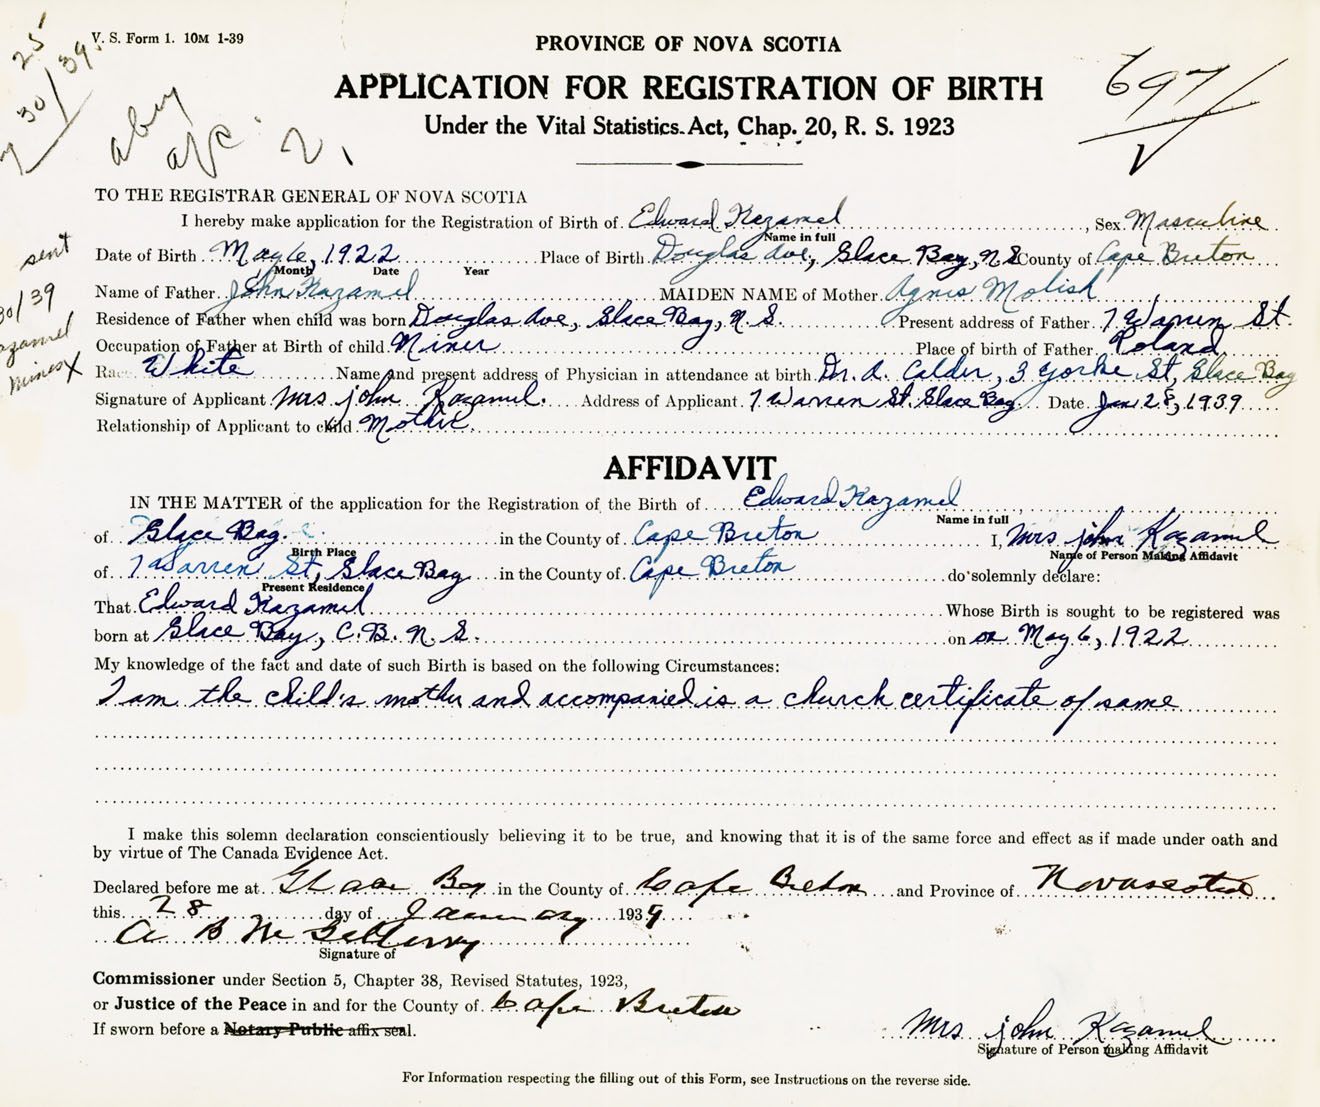 V. S. Form 1. 10M 1-39
PROVINCE OF NOVA SCOTIA
APPLICATION FOR REGISTRATION OF BIRTH
Under the Vital Statistics Act, Chap. 20, R. S. 1923
25
30/39
697
2
TO THE REGISTRAR GENERAL OF NOVA SCOTIA
I hereby make application for the Registration of Birth of Edward Kazamel, Sex Masculine
Name in full
sent
Date of Birth May 6, 1922 Place of Birth Douglas Ave, Glace Bay, N S County of Cape Breton
Month Date Year
30/39
Name of Father John Kazamel MAIDEN NAME of Mother Agnes Molish
Residence of Father when child was born Douglas Ave, Glace Bay, N. S. Present address of Father 7 Warren St.
Occupation of Father at Birth of child Miner Place of birth of Father Poland
Race White Name and present address of Physician in attendance at birth Dr. A. Calder, 3 Yorke St, Glace Bay
Signature of Applicant Mrs john Kazamel. Address of Applicant 7 Warren St. Glace Bay Date Jan 28, 1939
Relationship of Applicant to child Mother
AFFIDAVIT
IN THE MATTER of the application for the Registration of the Birth of Edward Kazamel
Name in full
of Glace Bay in the County of Cape Breton I, Mrs john Kazamel
Birth Place Name of Person Making Affidavit
of 7 Warren St, Glace Bay in the County of Cape Breton do solemnly declare:
Present Residence
That Edward Kazamel Whose Birth is sought to be registered was
born at Glace Bay, C. B. N. S. on on May 6, 1922
My knowledge of the fact and date of such Birth is based on the following Circumstances:
I am the child's mother and accompanied is a church certificate of same
I make this solemn declaration conscientiously believing it to be true, and knowing that it is of the same force and effect as if made under oath and
by virtue of The Canada Evidence Act.
Declared before me at Glace Bay in the County of Cape Breton and Province of Novascotia
this 28 day of January 1939
A B Mc
Signature of
Commissioner under Section 5, Chapter 38, Revised Statutes, 1923,
or Justice of the Peace in and for the County of Cape Breton
If sworn before a Notary Public affix seal.
Mrs john Kazamel
Signature of Person making Affidavit
For Information respecting the filling out of this Form, see Instructions on the reverse side.